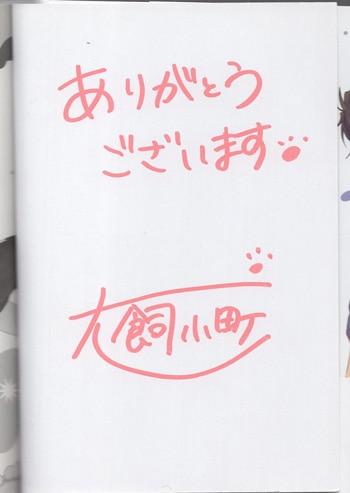 ありがとう
ございます
犬飼小町